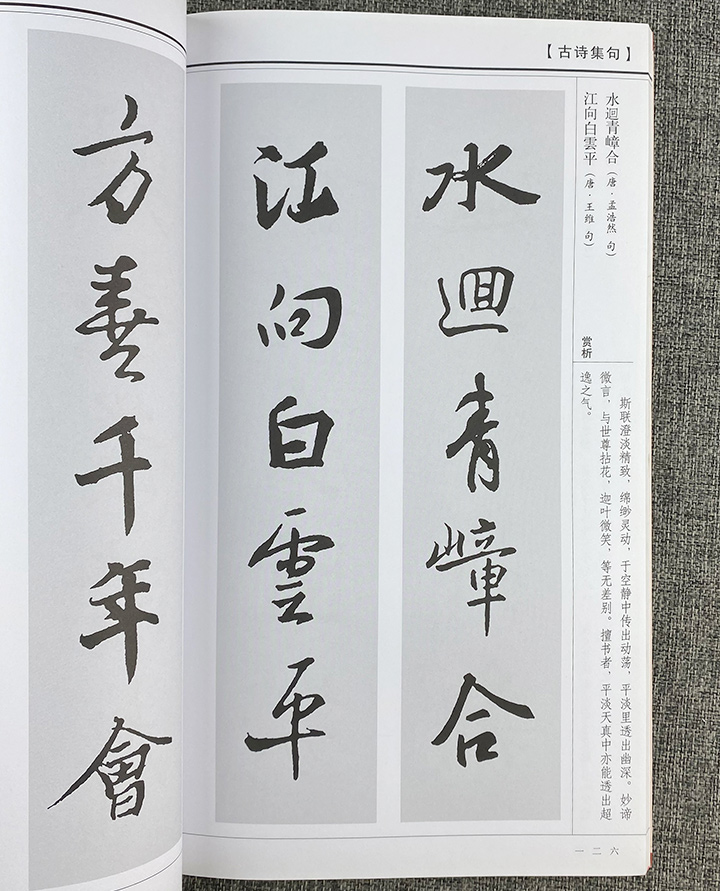 【古诗集句】
水迴青嶂合（唐·孟浩然 句）
江向白雲平（唐·王维 句）
赏析
斯联澄淡精致，绵缈灵动，于空静中传出动荡，平淡里透出幽深。妙谛
微言，与世尊拈花，迦叶微笑，等无差别。擅书者，平淡天真中亦能透出超
逸之气。
水迴青嶂合
江向白雲平
方善千年會
一二六